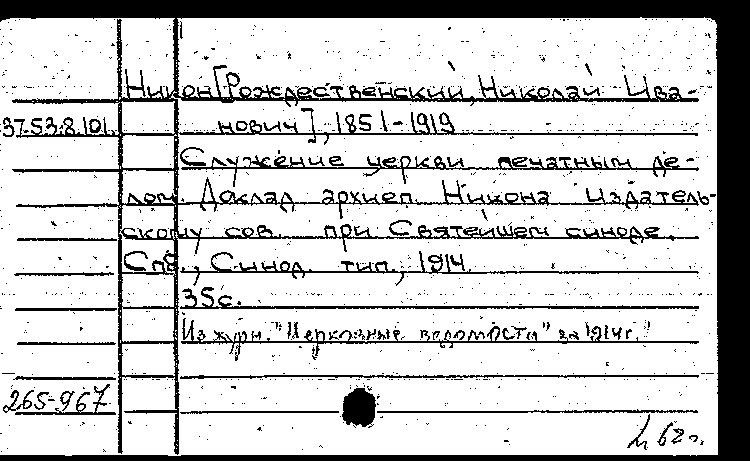 Никон [Рождественский, Николай Ива-
37.53.8.101. нович], 1851-1919
Служение церкви печатным де-
лом. Доклад архиеп. Никона Издатель-
скому сов. при Святейшем синоде.
Спб., Синод. тип., 1914.
35с.
Из журн. "Церковные ведомости" за 1914г.
265-967
62г.